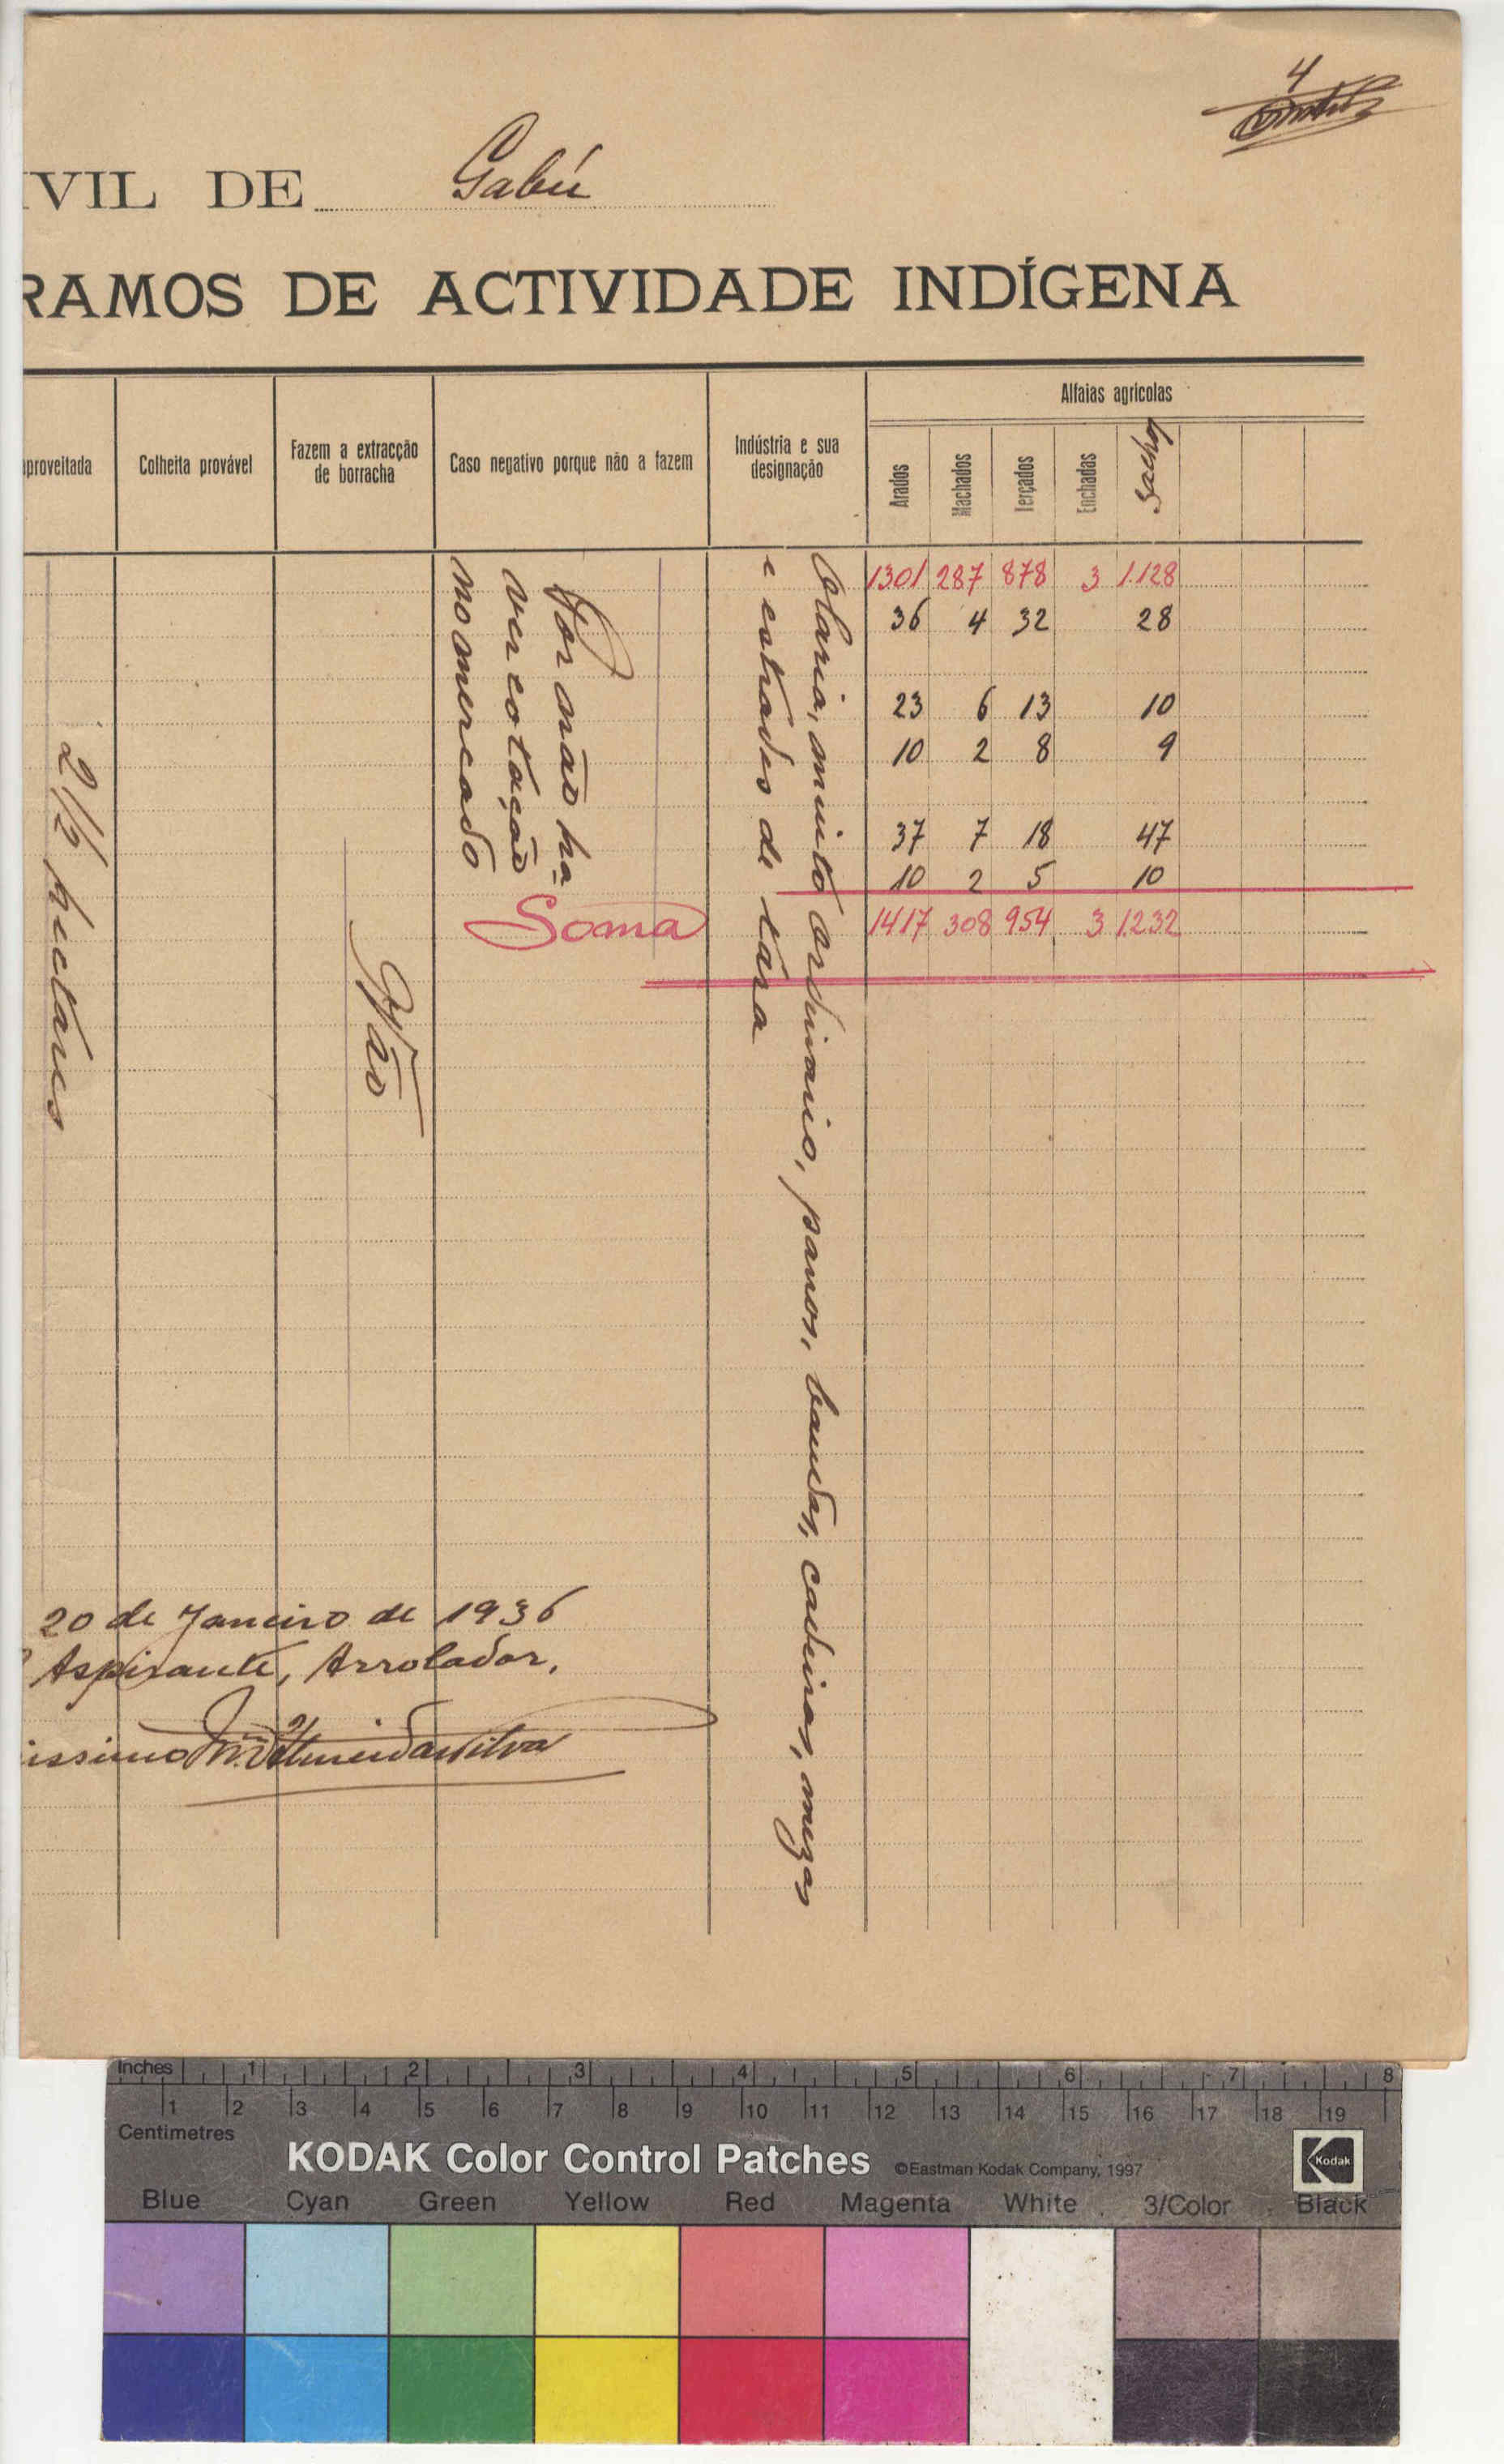 4
IVIL DE Gabú
RAMOS DE ACTIVIDADE INDÍGENA
aproveitada
Colheita provável
Fazem a extracção
de borracha
Caso negativo porque não a fazem
Indústria e sua
designação
Alfaias agrícolas
Arados
Machados
Terçados
Enchadas
Sachos
1301 287 878 3 1.128
36 4 32 28
23 6 13 10
10 2 8 9
37 7 18 47
10 2 5 10
Soma 1417 308 954 3 1.232
2 1/2 hectares
Não
Por não ha
ver cotação
no mercado
Olaria, muito ordinario, panos, bandas, cadeiras, mezas
e estrados de tara
20 de Janeiro de 1936
Aspirante, Arrolador,
issimo M. d'Almeida e Silva
Inches 1 2 3 4 5 6 7 8
1 2 3 4 5 6 7 8 9 10 11 12 13 14 15 16 17 18 19
Centimetres
KODAK Color Control Patches ©Eastman Kodak Company, 1997 Kodak
Blue Cyan Green Yellow Red Magenta White 3/Color Black